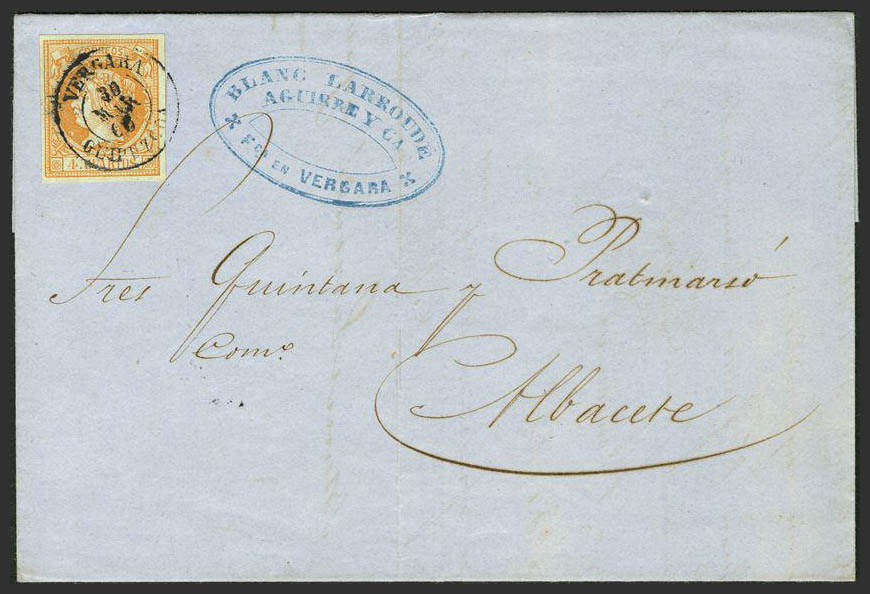 VERGARA
30
MAR
60
GUIPUZCOA
BLANC LARROUDE
AGUIRRE Y CA
FCA EN VERGARA
Sres Quintana y Pratmarsó
Como
Albacete